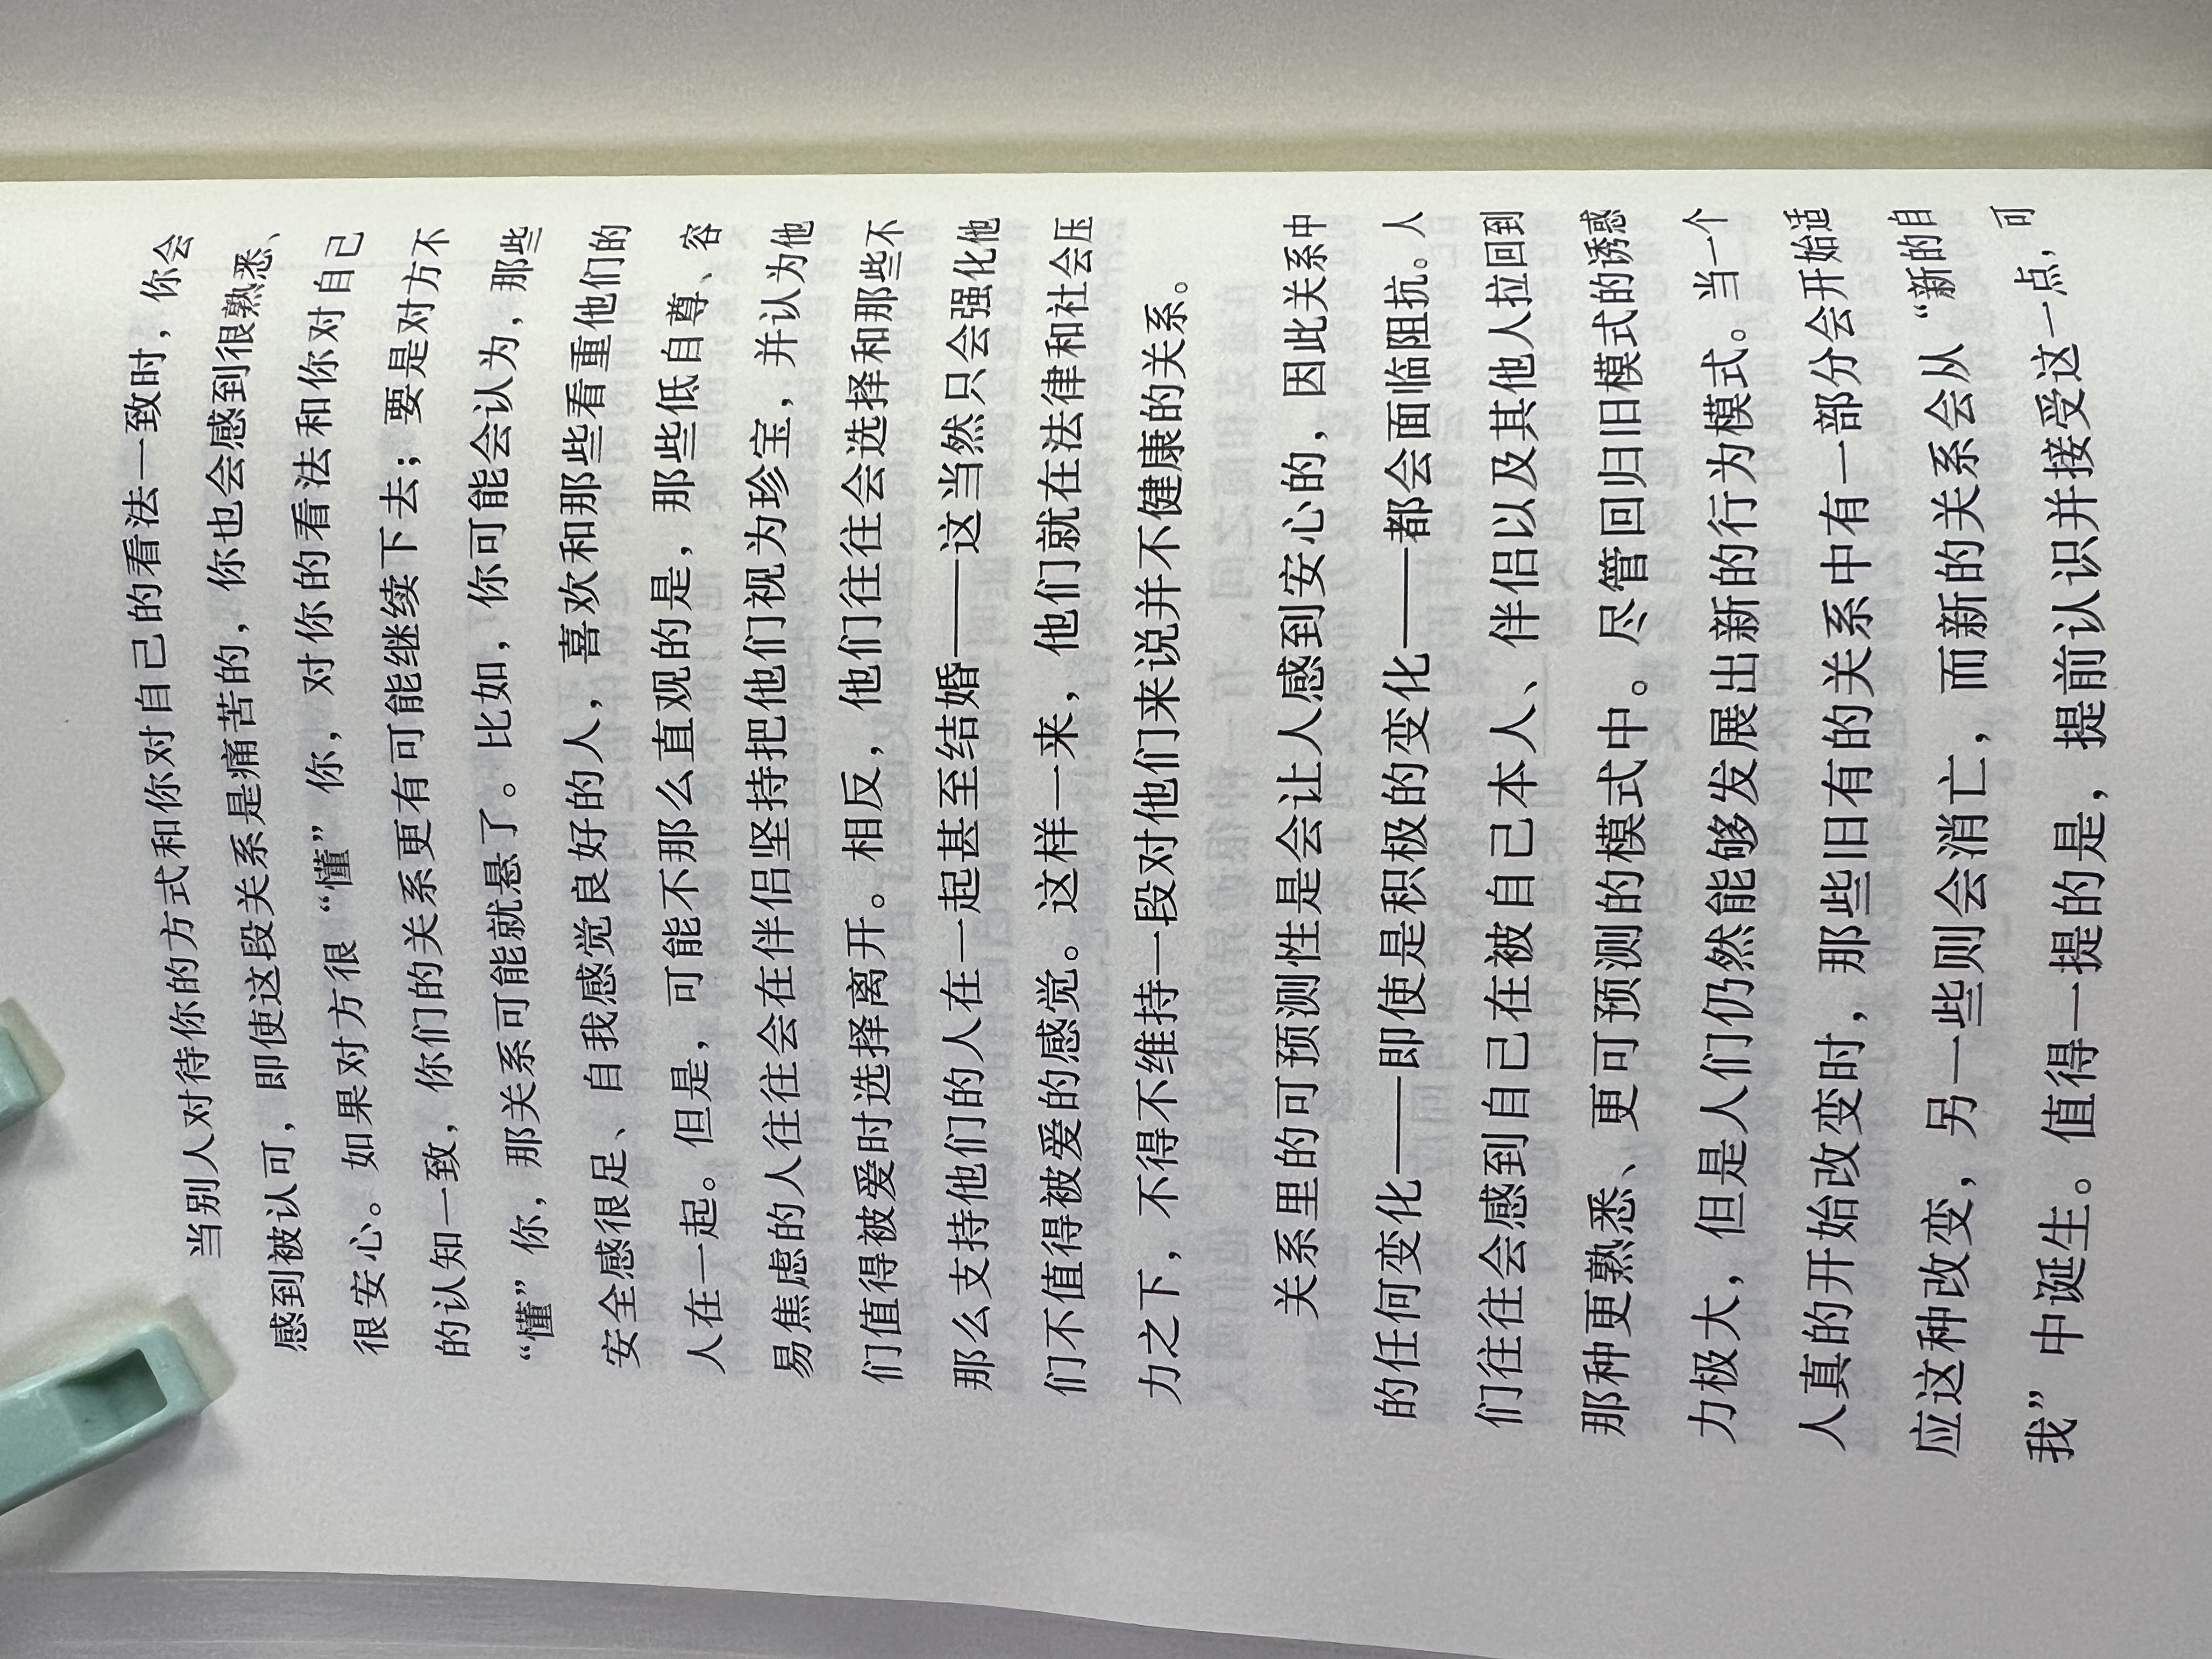 当别人对待你的方式和你对自己的看法一致时，你会
感到被认可，即使这段关系是痛苦的，你也会感到很熟悉、
很安心。如果对方很“懂”你，对你的看法和你对自己
的认知一致，你们的关系更有可能继续下去；要是对方不
“懂”你，那关系可能就悬了。比如，你可能会认为，那些
安全感很足、自我感觉良好的人，喜欢和那些看重他们的
人在一起。但是，可能不那么直观的是，那些低自尊、容
易焦虑的人往往会在伴侣坚持把他们视为珍宝，并认为他
们值得被爱时选择离开。相反，他们往往会选择和那些不
那么支持他们的人在一起甚至结婚——这当然只会强化他
们不值得被爱的感觉。这样一来，他们就在法律和社会压
力之下，不得不维持一段对他们来说并不健康的关系。
关系里的可预测性是会让人感到安心的，因此关系中
的任何变化——即使是积极的变化——都会面临阻抗。人
们往往会感到自己在被自己本人、伴侣以及其他人拉回到
那种更熟悉、更可预测的模式中。尽管回归旧模式的诱惑
力极大，但是人们仍然能够发展出新的行为模式。当一个
人真的开始改变时，那些旧有的关系中有一部分会开始适
应这种改变，另一些则会消亡，而新的关系会从“新的自
我”中诞生。值得一提的是，提前认识并接受这一点，可